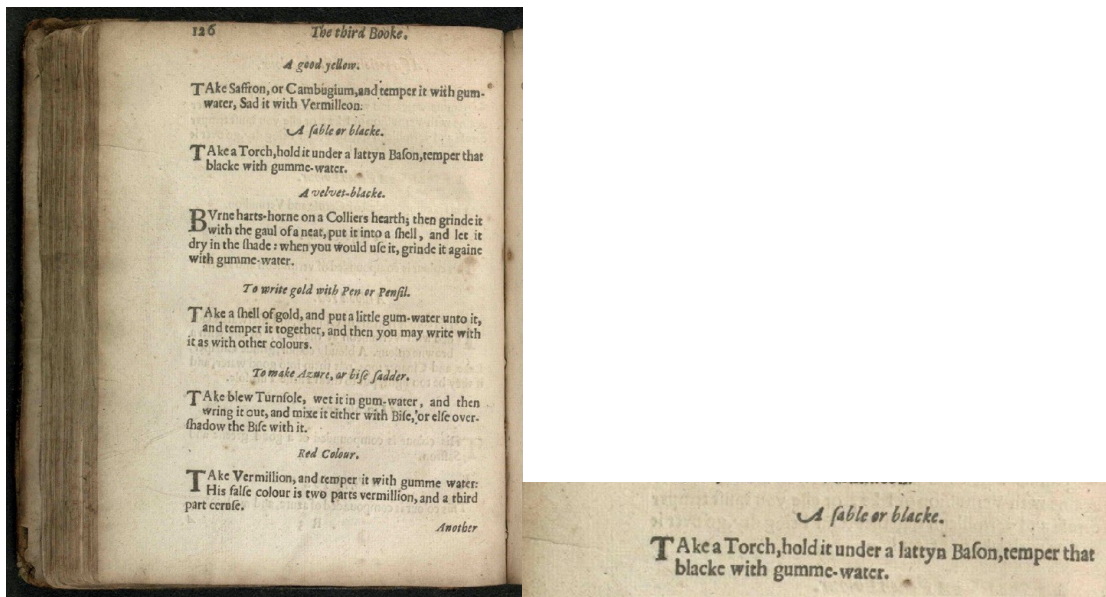 126 The third Booke.
A good yellow.
TAke Saffron, or Cambugium, and temper it with gum-
water, Sad it with Vermilleon.
A ſable or blacke.
TAke a Torch, hold it under a lattyn Baſon, temper that
blacke with gumme-water.
A velvet-blacke.
BVrne harts-horne on a Colliers hearth; then grinde it
with the gaul of a neat, put it into a ſhell, and let it
dry in the ſhade: when you would uſe it, grinde it againe
with gumme-water.
To write gold with Pen or Penſil.
TAke a ſhell of gold, and put a little gum-water unto it,
and temper it together, and then you may write with
it as with other colours.
To make Azure, or biſe ſadder.
TAke blew Turnſole, wet it in gum-water, and then
wring it out, and mixe it either with Biſe, or elſe over-
ſhadow the Biſe with it.
Red Colour.
TAke Vermillion, and temper it with gumme water:
His falſe colour is two parts vermillion, and a third
part ceruſe.
Another
A ſable or blacke.
TAke a Torch, hold it under a lattyn Baſon, temper that
blacke with gumme-water.